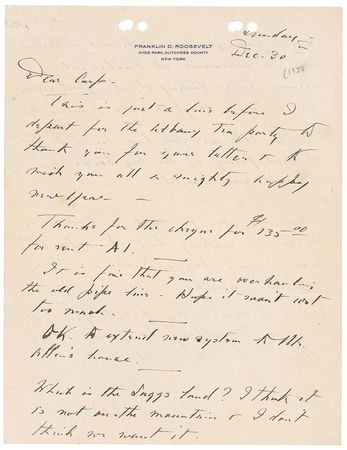 FRANKLIN D. ROOSEVELT
HYDE PARK, DUTCHESS COUNTY
NEW YORK
Sunday
Dec. 30
Dear Carp -
This is just a line before I
depart for the Albany Tea party to
thank you for your letter & to
wish you all a mighty happy
New Year -
Thanks for the cheque for $135.00
for rent A1.
It is fine that you are overhauling
the old pipe line - Hope it won't cost
too much.
OK. to extend new system to Mr.
house.
Which is the Suggs land? I think it
is not on the mountain & I don't
think we want it.